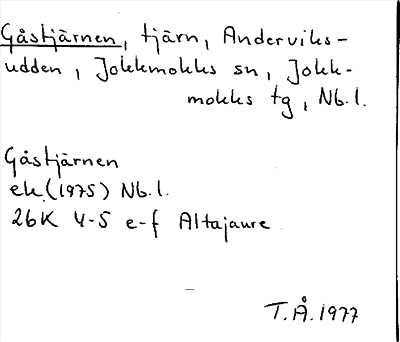 Gåstjärnen, tjärn, Anderviks-
udden, Jokkmokks sn, Jokk-
mokks tg, Nb.l.
Gåstjärnen
ek (1975) Nb.l.
26K 4-5 e-f Altajaure
T.Å. 1977